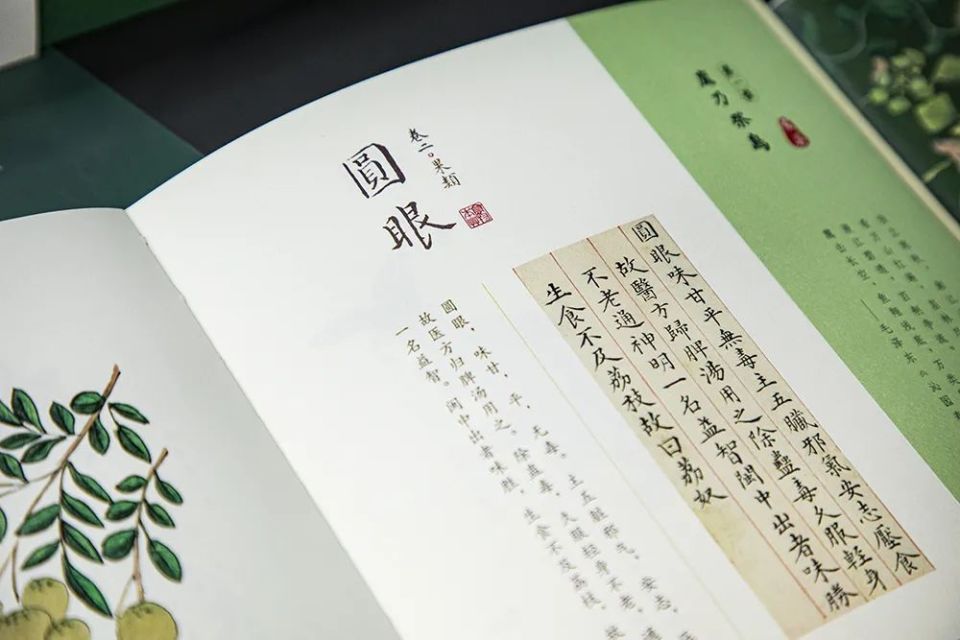 鹰乃祭鸟
毛泽东《沁园
卷二○果類
圓眼
圓眼味甘平無毒主五臟邪氣安志壓食
故醫方歸脾湯用之除蠱毒久服輕身
不老通神明一名益智閩中出者味勝
生食不及荔枝故曰荔奴
圆眼，味甘，平，无毒。主五脏邪气，安志，
故医方归脾汤用之。除蛊毒，久服轻身不老，通
一名益智。闽中出者味胜，生食不及荔枝，